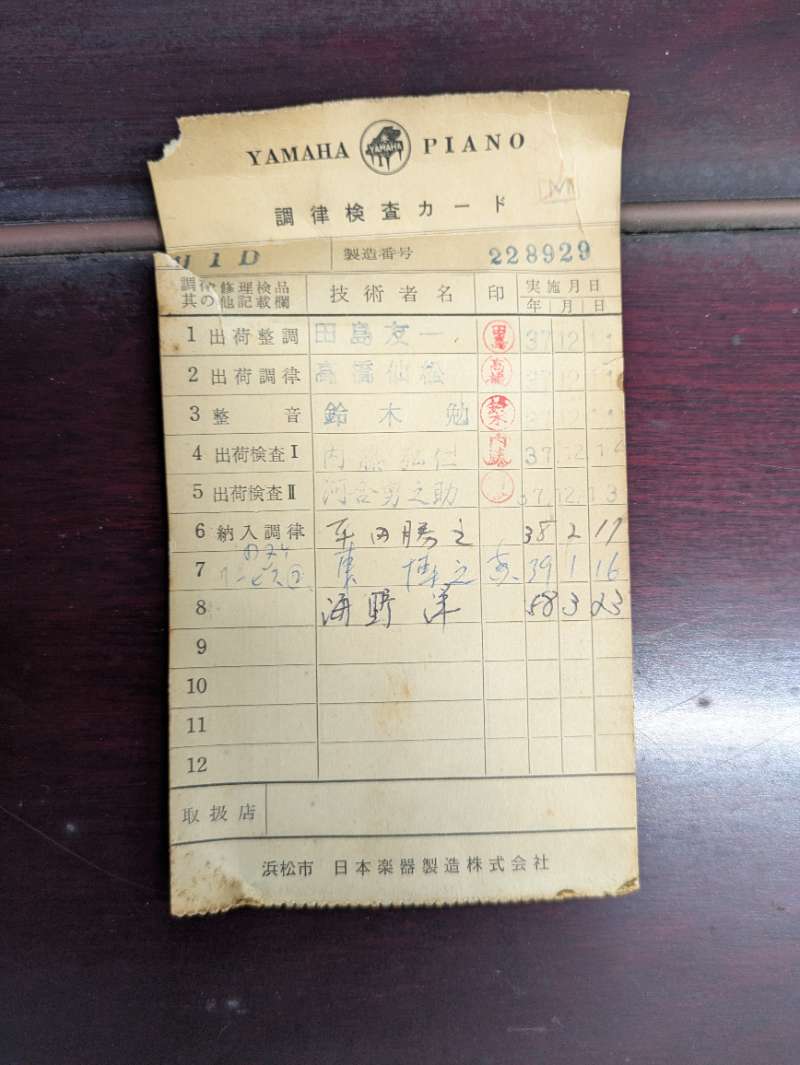 YAMAHA PIANO
YAMAHA
調律検査カード
U1D 製造番号 228929
調律修理検品 其の他記載欄 技術者名 印 実施月日 年 月 日
1 出荷整調 田島友一 田島 37 12
2 出荷調律 高橋仙松 高橋 37 12
3 整音 鈴木勉 鈴木
4 出荷検査I 内藤 内藤 37 12
5 出荷検査II 河合勇之助 37 12 13
6 納入調律 平田勝之 38 2 17
7 東 博之 39 1 16
8 海野 洋 58 3 23
9
10
11
12
取扱店
浜松市 日本楽器製造株式会社